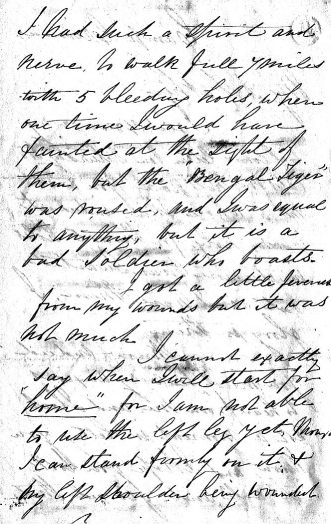 I had such a spirit and
nerve, to walk full 7 miles
with 5 bleeding holes, when
one time I would have
fainted at the sight of
them, but the "Bengal Tiger"
was roused, and I was equal
to anything, but it is a
bad Soldier who boasts.
I got a little
from my wounds but it was
not much
I cannot exactly
say when I will start for
"home" for I am not able
to use the left leg yet,
I can stand firmly on it, &
my left shoulder being wounded